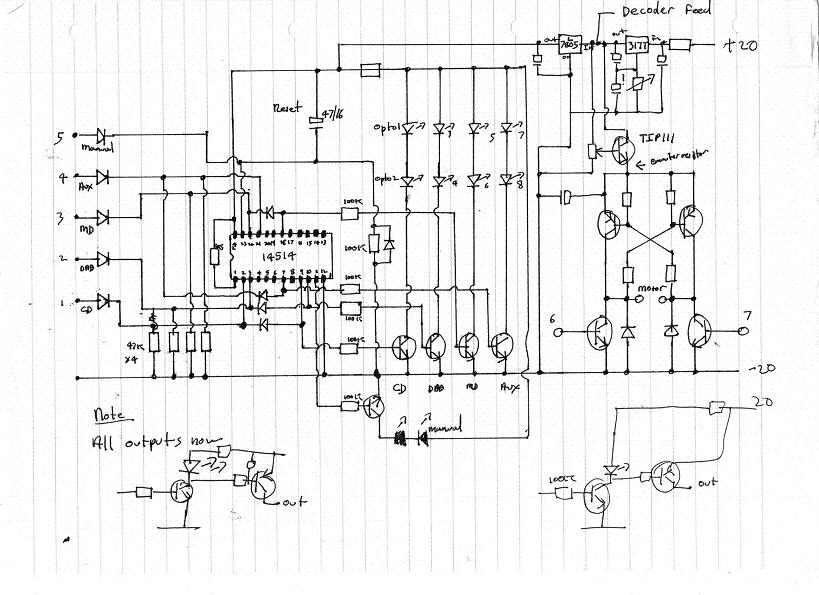 Decoder feed
out
7805
In
out
317T
In
+20
on
Reset
47/16
!
TIP111
opto1
3
5
7
5
manual
opto2
4
6
8
4
AUX
100K
3
MD
14514
100K
2
DAB
100K
motor
1
CD
100K
6
7
47K
x4
100K
CD
DAB
MD
AUX
-20
100K
manual
Note
All outputs now
out
20
100K
out